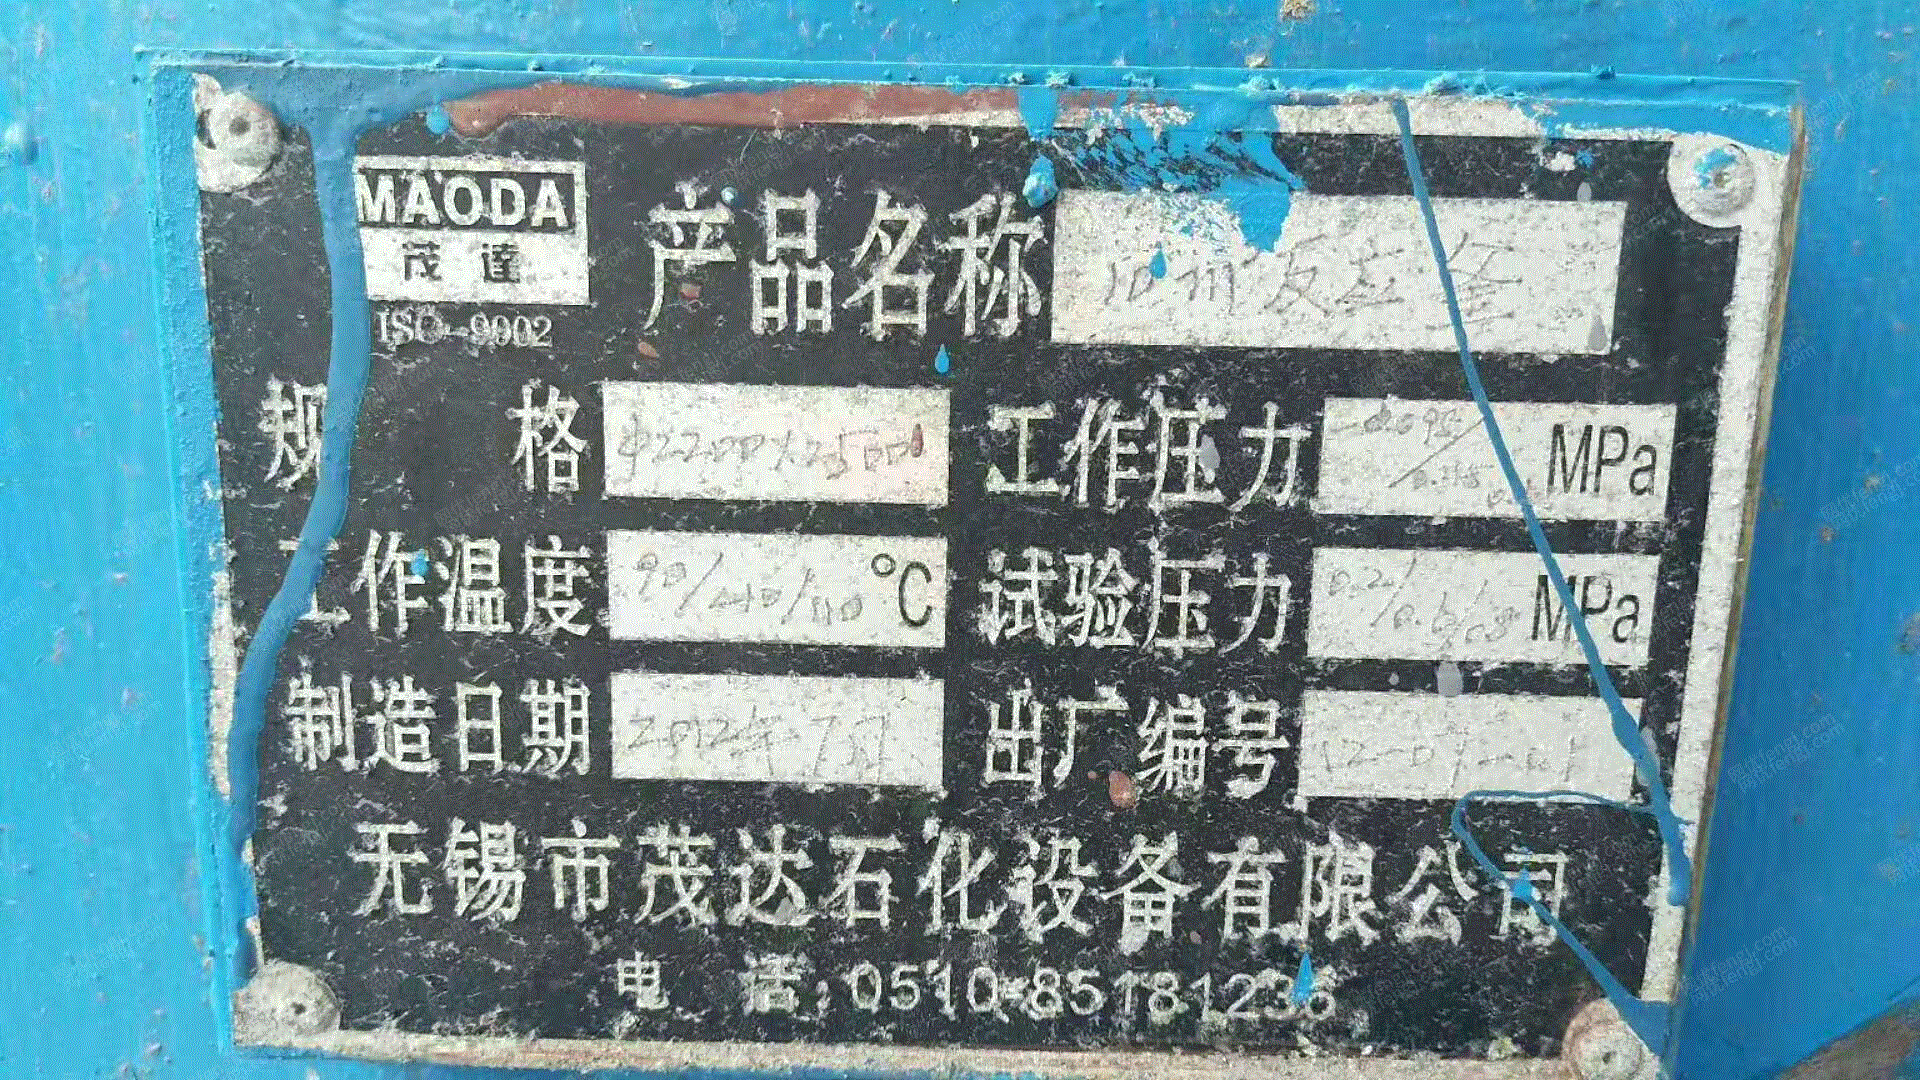 MAODA
茂達
ISO-9002
产品名称 10M³反应釜
规格 φ2200X2500 工作压力 -0.095/ MPa
工作温度 90/ /110 ℃ 试验压力 0.2/0.6/ MPa
制造日期 2012年7月 出厂编号 12-07-01
无锡市茂达石化设备有限公司
电 话:0510-85181236